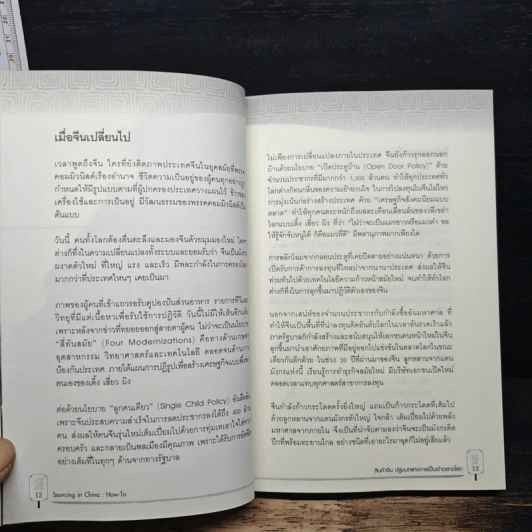 เมื่อจีนเปลี่ยนไป
เวลาพูดถึงจีน ใครที่ยังติดภาพประเทศจีนในยุคสมัยที่พรรค
คอมมิวนิสต์เรืองอำนาจ ชีวิตความเป็นอยู่ของผู้คนทุกอย่างถูก
กำหนดให้มีรูปแบบตามที่ผู้ปกครองประเทศวางแผนไว้
เครื่องใช้และการเป็นอยู่ มีวัฒนธรรมของพรรคคอมมิวนิสต์เป็น
ต้นแบบ
วันนี้ คนทั้งโลกต้องตื่นตะลึงและมองจีนด้วยมุมมองใหม่
ต่างก็ทึ่งในความเปลี่ยนแปลงทั้งระบบและยอมรับว่า จีนเป็น
ผงาดตัวใหม่ ที่ใหญ่ แรง และเร็ว มีพละกำลังในการครอง
มากกว่าที่ประเทศไหนๆ เคยเป็นมา
ภาพของผู้คนที่เข้าแถวรอรับคูปองปันส่วนอาหาร รายการทีวีและ
วิทยุที่มีแต่เนื้อหาเพื่อรับใช้การปฏิวัติ วันนี้ไม่มีให้เห็นอีกแล้ว
เพราะหลังจากข่าวที่ทยอยออกสู่สายตาผู้คน ไม่ว่าจะเป็นนโยบาย
"สี่ทันสมัย" (Four Modernizations) คือทางด้านเกษตร
อุตสาหกรรม วิทยาศาสตร์และเทคโนโลยี ตลอดจนด้านการ
ป้องกันประเทศ ภายใต้แผนการปฏิรูปเพื่อสร้างเศรษฐกิจแบบพึ่งพา
ตนเองของเติ้ง เสี่ยว ผิง
ต่อด้วยนโยบาย "ลูกคนเดียว" (Single Child Policy)
เพราะจีนประสบความสำเร็จในการลดประชากรลงได้ถึง 400 ล้าน
คน ส่งผลให้คนจีนรุ่นใหม่เติบโตมาด้วยการทุ่มเทเอาใจใส่จาก
ครอบครัว และกลายเป็นพลเมืองมีคุณภาพ เพราะได้รับการศึกษา
อย่างดีที่ในทุกๆ ด้านจากทางรัฐบาล
12
Sourcing in China : How-To
ไม่เพียงการเปลี่ยนแปลงภายในประเทศ จีนยังก้าวรุกออกนอก
บ้านด้วยนโยบาย "เปิดประตูบ้าน (Open Door Policy)" ด้วย
จำนวนประชากรที่มีมากกว่า 1,300 ล้านคน ทำให้ทุกประเทศทั่ว
โลกต่างก็ทนกลั้นของความเย้ายวนใจ ในการไปลงทุนในจีนไม่ไหว
การมุ่งเน้นก่อร่างสร้างประเทศ ด้วย "เศรษฐกิจสังคมนิยมแบบ
ตลาด" ทำให้ทุกคนตระหนักถึงผลสะเทือนเลื่อนลั่นของวลีเขย่า
โลกแบบเติ้ง เสี่ยว ผิง ที่ว่า "ไม่ว่าจะเป็นแมวขาวหรือแมวดำ ขอ
ให้รู้จักจับหนูได้ ก็คือแมวที่ดี" มีพลานุภาพมากเพียงใด
การพลิกโฉมจากกลอนประตูที่เคยปิดตายอย่างแน่นหนา ด้วยการ
เปิดรับการค้าการลงทุนที่ไหลบ่าจากนานาประเทศ ส่งผลให้จีน
ท่วมท้นไปด้วยเทคโนโลยีความก้าวหน้าสมัยใหม่ จนทำให้ทั่วโลก
ต่างก็ทึ่งในการลุกขึ้นมาปฏิวัติตัวเองของจีน
นอกจากเสน่ห์ของจำนวนประชากรกำลังซื้ออันมหาศาล ที่
ทำให้จีนเป็นพื้นที่ที่น่าลงทุนติดอันดับโลกในเวลาอันรวดเร็วแล้ว
ภาครัฐบาลก็กำลังสร้างและสนับสนุนให้เอกชนคนหน้าใหม่ในจีน
ลุกขึ้นมานำเอาศักยภาพที่มีอยู่ออกไปแข่งขันในตลาดโลกในขณะ
เดียวกันอีกด้วย ในช่วง 20 ปีที่ผ่านมาของจีน ลูกหลานจากแดน
มังกรแห่งนี้ เรียนรู้การทำธุรกิจสมัยใหม่ มีบริษัทเอกชนเปิดใหม่
ตลอดเวลาแทบทุกศาสตร์สาขาการลงทุน
จีนกำลังก้าวกระโดดครั้งยิ่งใหญ่ แถมเป็นก้าวกระโดดที่เต็มไป
ด้วยลูกหลานจากแดนมังกรตัวใหญ่ ใจกล้า เติมเปี่ยมไปด้วยพลัง
มหาศาลจากภายใน จึงเป็นที่น่าจับตามองว่าจีนจะเป็นมังกรติด
ปีกที่พร้อมทะยานไกล อย่างชนิดที่เอาอะไรมาฉุดก็ไม่อยู่เสียแล้ว
สินค้าจีน ปฐมบทแห่งการเป็นเจ้าตลาดโลก
13